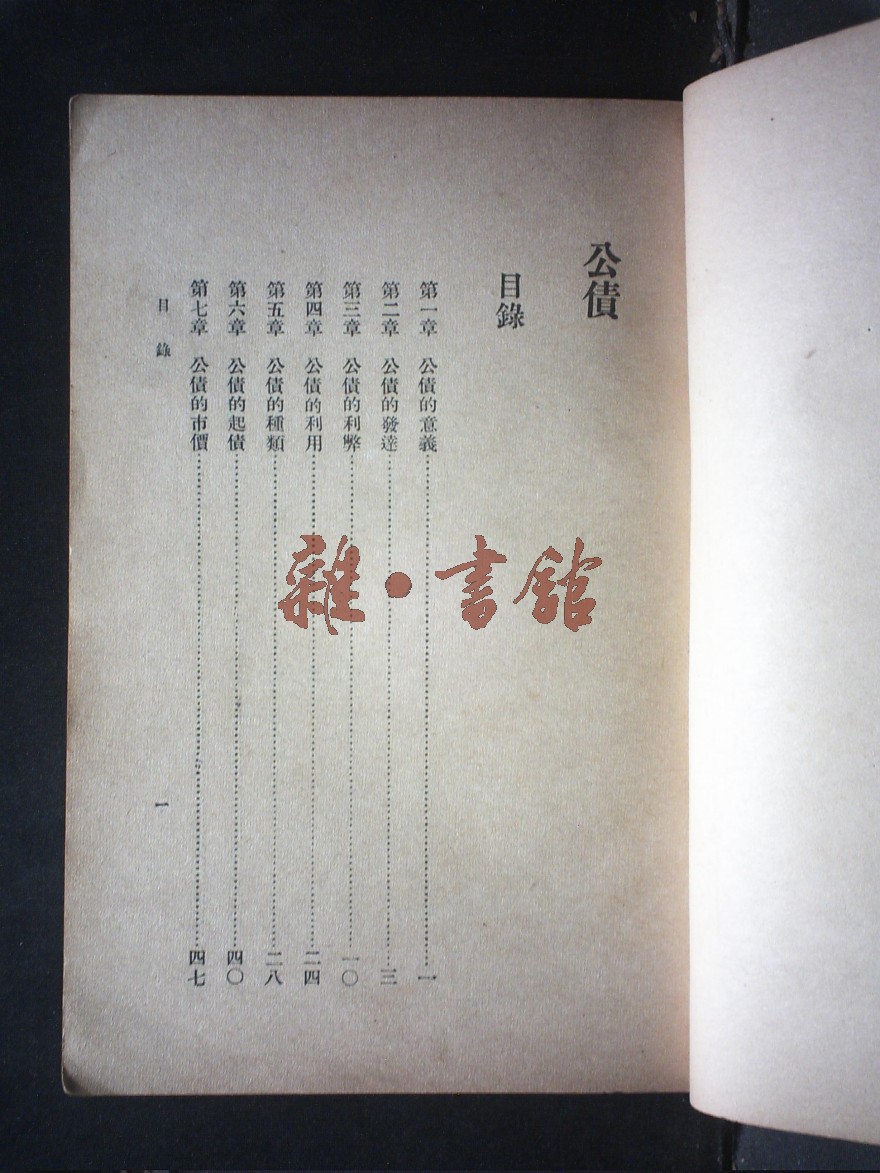 公債
目錄
第一章 公債的意義……一
第二章 公債的發達……三
第三章 公債的利弊……一〇
第四章 公債的利用……二四
第五章 公債的種類……二八
第六章 公債的起債……四〇
第七章 公債的市價……四七
目錄
一
雜·書館